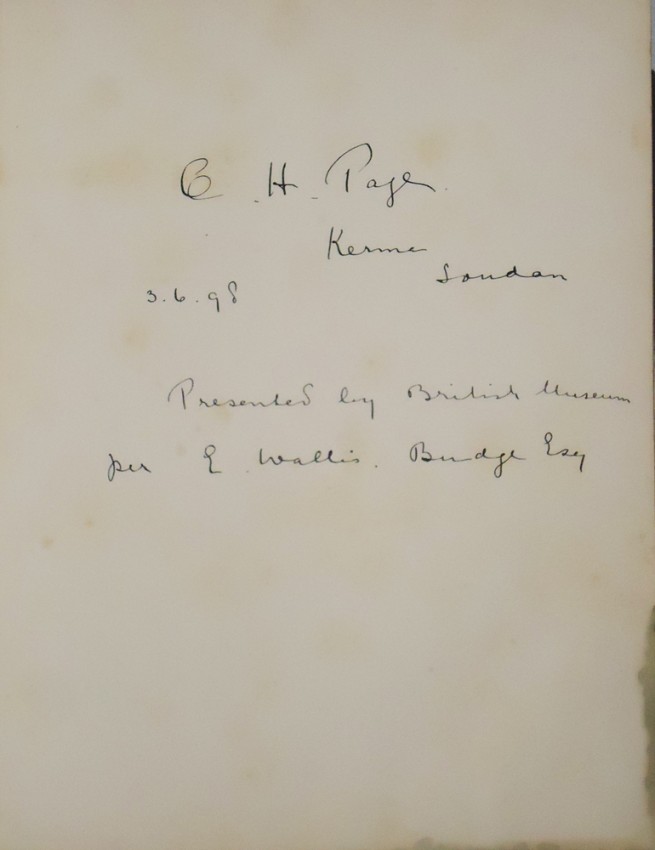 C. H. Page.
Kerma
Soudan
3.6.98
Presented by British Museum
per E. Wallis. Budge Esq